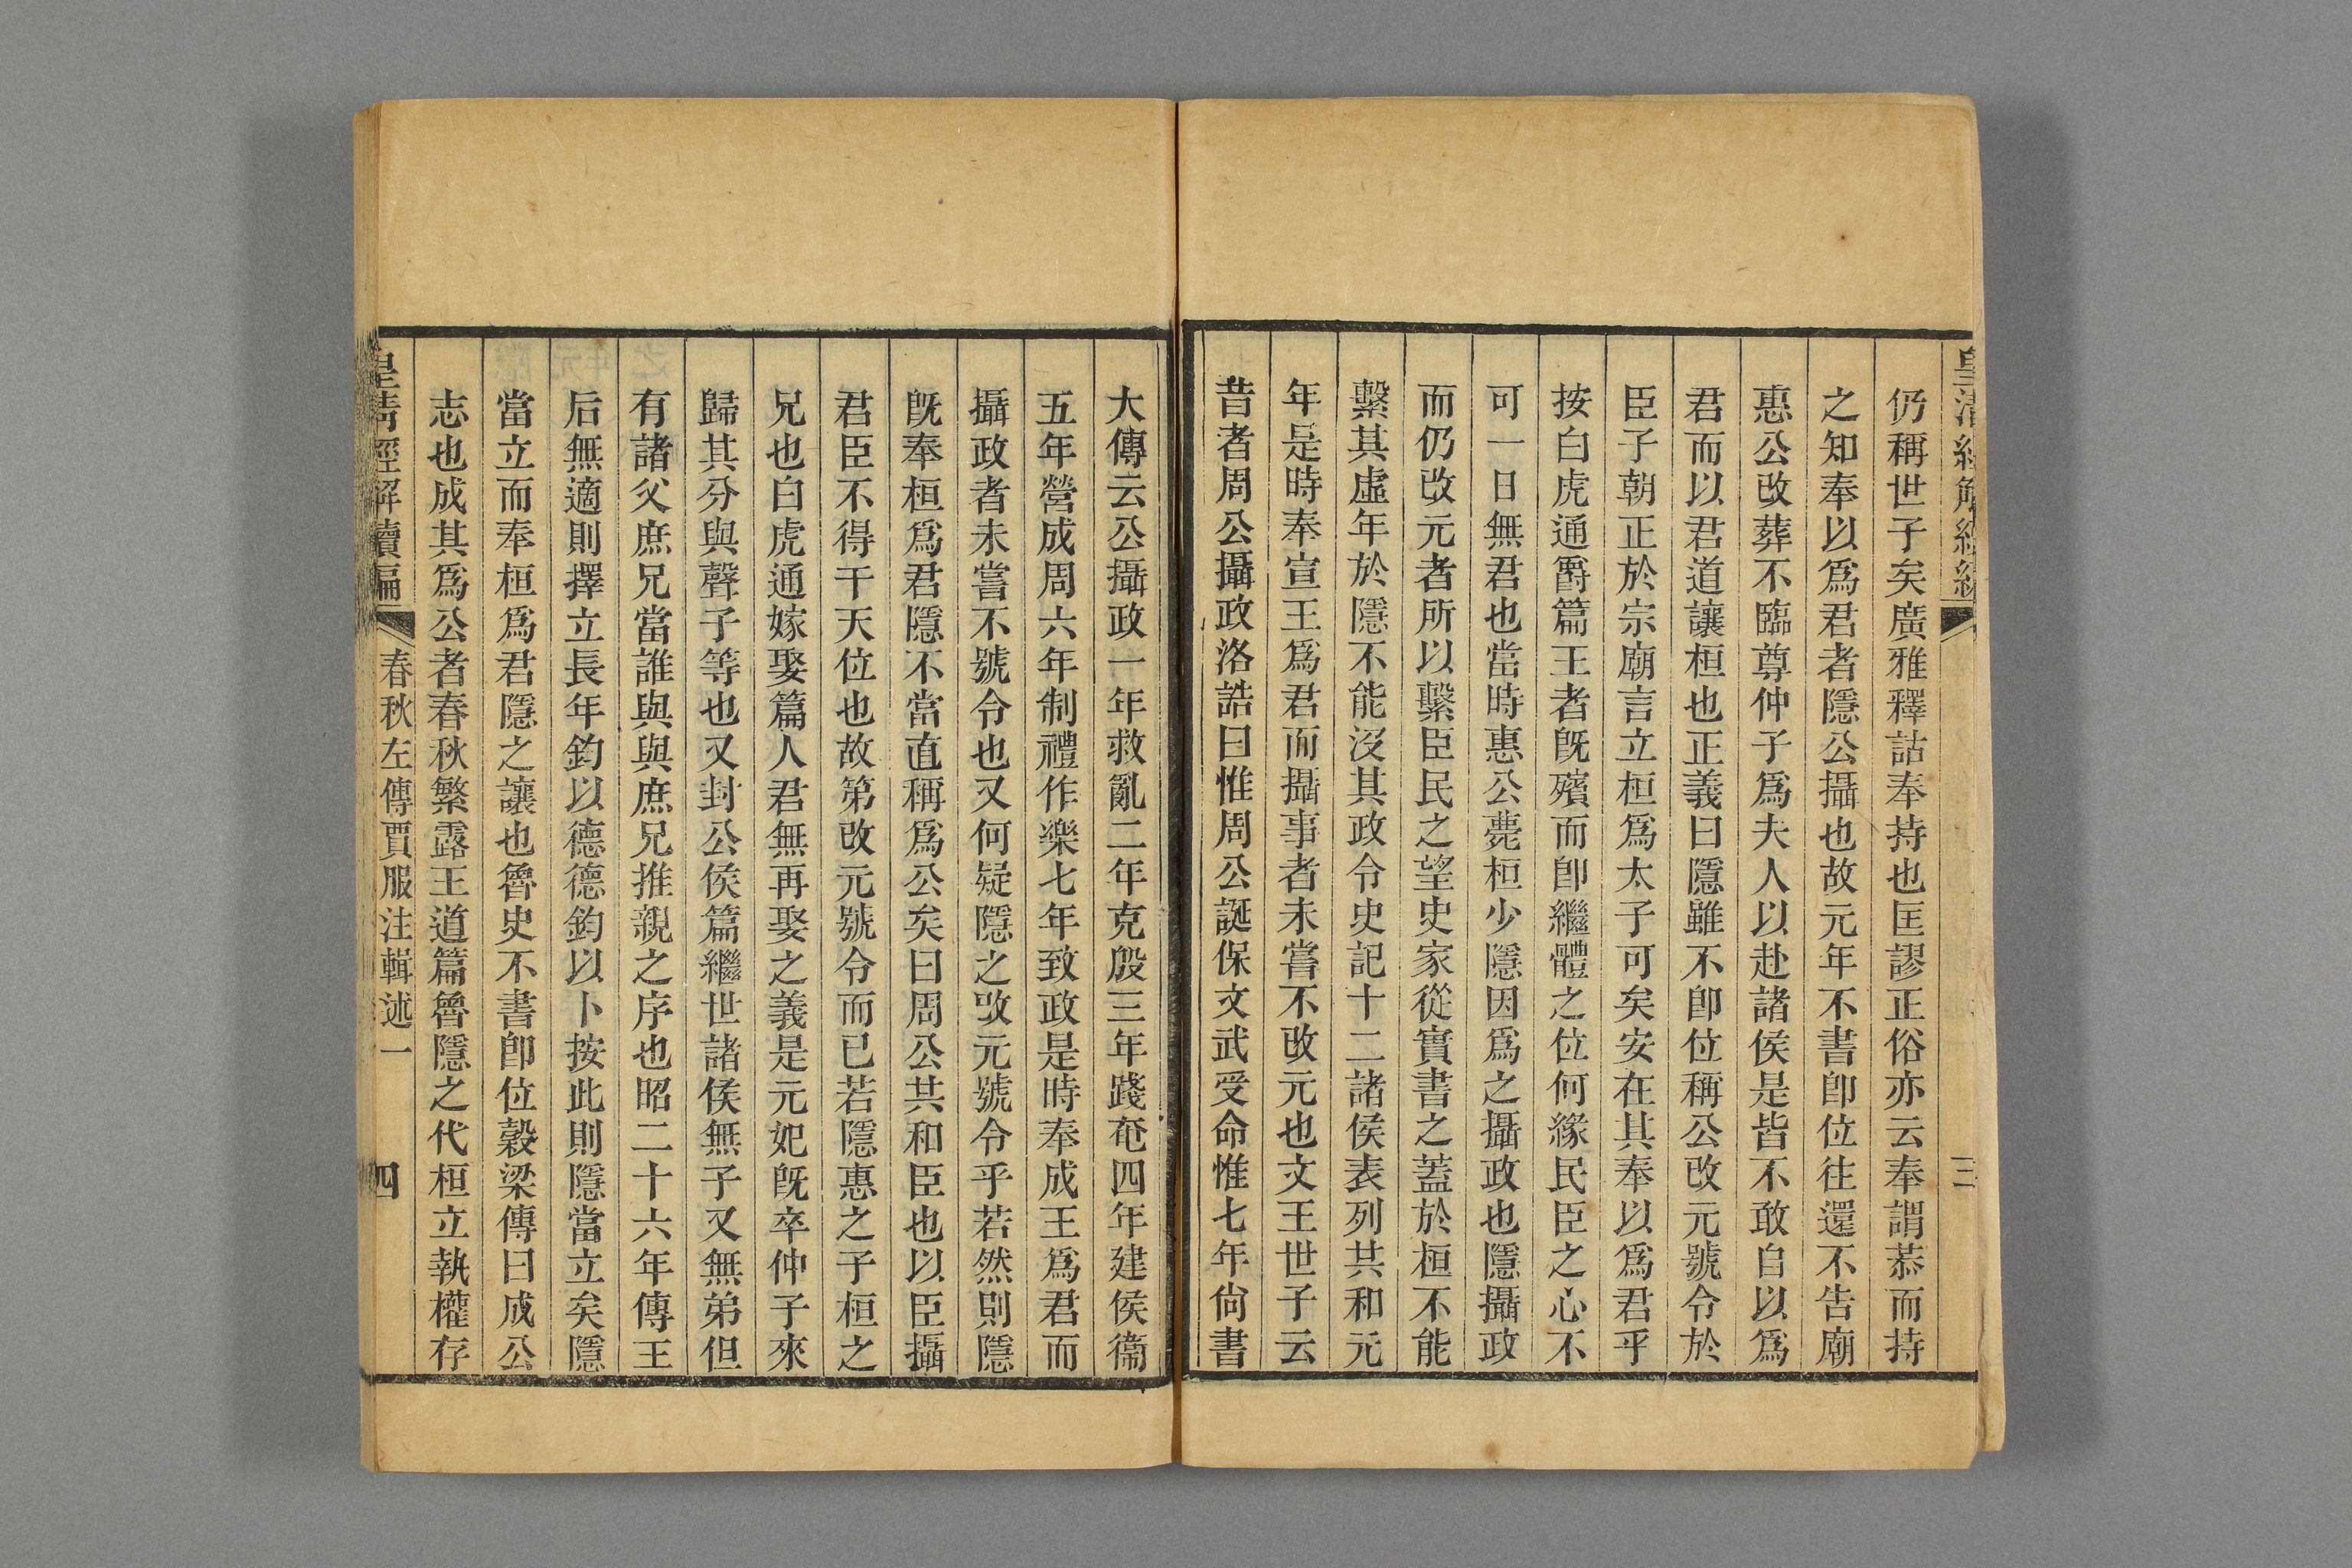 皇清經解續編
三
仍稱世子矣廣雅釋詁奉持也匡謬正俗亦云奉謂恭而持
之知奉以爲君者隱公攝也故元年不書卽位往還不告廟
惠公改葬不臨尊仲子爲夫人以赴諸侯是皆不敢自以爲
君而以君道讓桓也正義曰隱雖不卽位稱公改元號令於
臣子朝正於宗廟言立桓爲太子可矣安在其奉以爲君乎
按白虎通爵篇王者旣殯而卽繼體之位何緣民臣之心不
可一日無君也當時惠公薨桓少隱因爲之攝政也隱攝政
而仍改元者所以繫臣民之望史家從實書之蓋於桓不能
繫其虛年於隱不能沒其政令史記十二諸侯表列共和元
年是時奉宣王爲君而攝事者未嘗不改元也文王世子云
昔者周公攝政洛誥曰惟周公誕保文武受命惟七年尙書
大傳云公攝政一年救亂二年克殷三年踐奄四年建侯衞
五年營成周六年制禮作樂七年致政是時奉成王爲君而
攝政者未嘗不號令也又何疑隱之改元號令乎若然則隱
旣奉桓爲君隱不當直稱爲公矣曰周公共和臣也以臣攝
君臣不得干天位也故第改元號令而已若隱惠之子桓之
兄也白虎通嫁娶篇人君無再娶之義是元妃旣卒仲子來
歸其分與聲子等也又封公侯篇繼世諸侯無子又無弟但
有諸父庶兄當誰與與庶兄推親之序也昭二十六年傳王
后無適則擇立長年鈞以德德鈞以卜按此則隱當立矣隱
當立而奉桓爲君隱之讓也魯史不書卽位穀梁傳曰成公
志也成其爲公者春秋繁露王道篇魯隱之代桓立執權存
皇清經解續編
春秋左傳賈服注輯述一
四